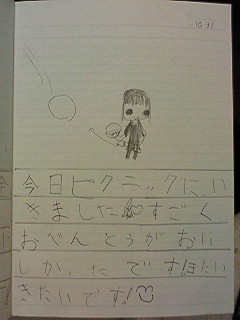 10.31
今日ピクニックにい
きました すごく
おべんとうがおい
しかったです!またい
きたいです!♡